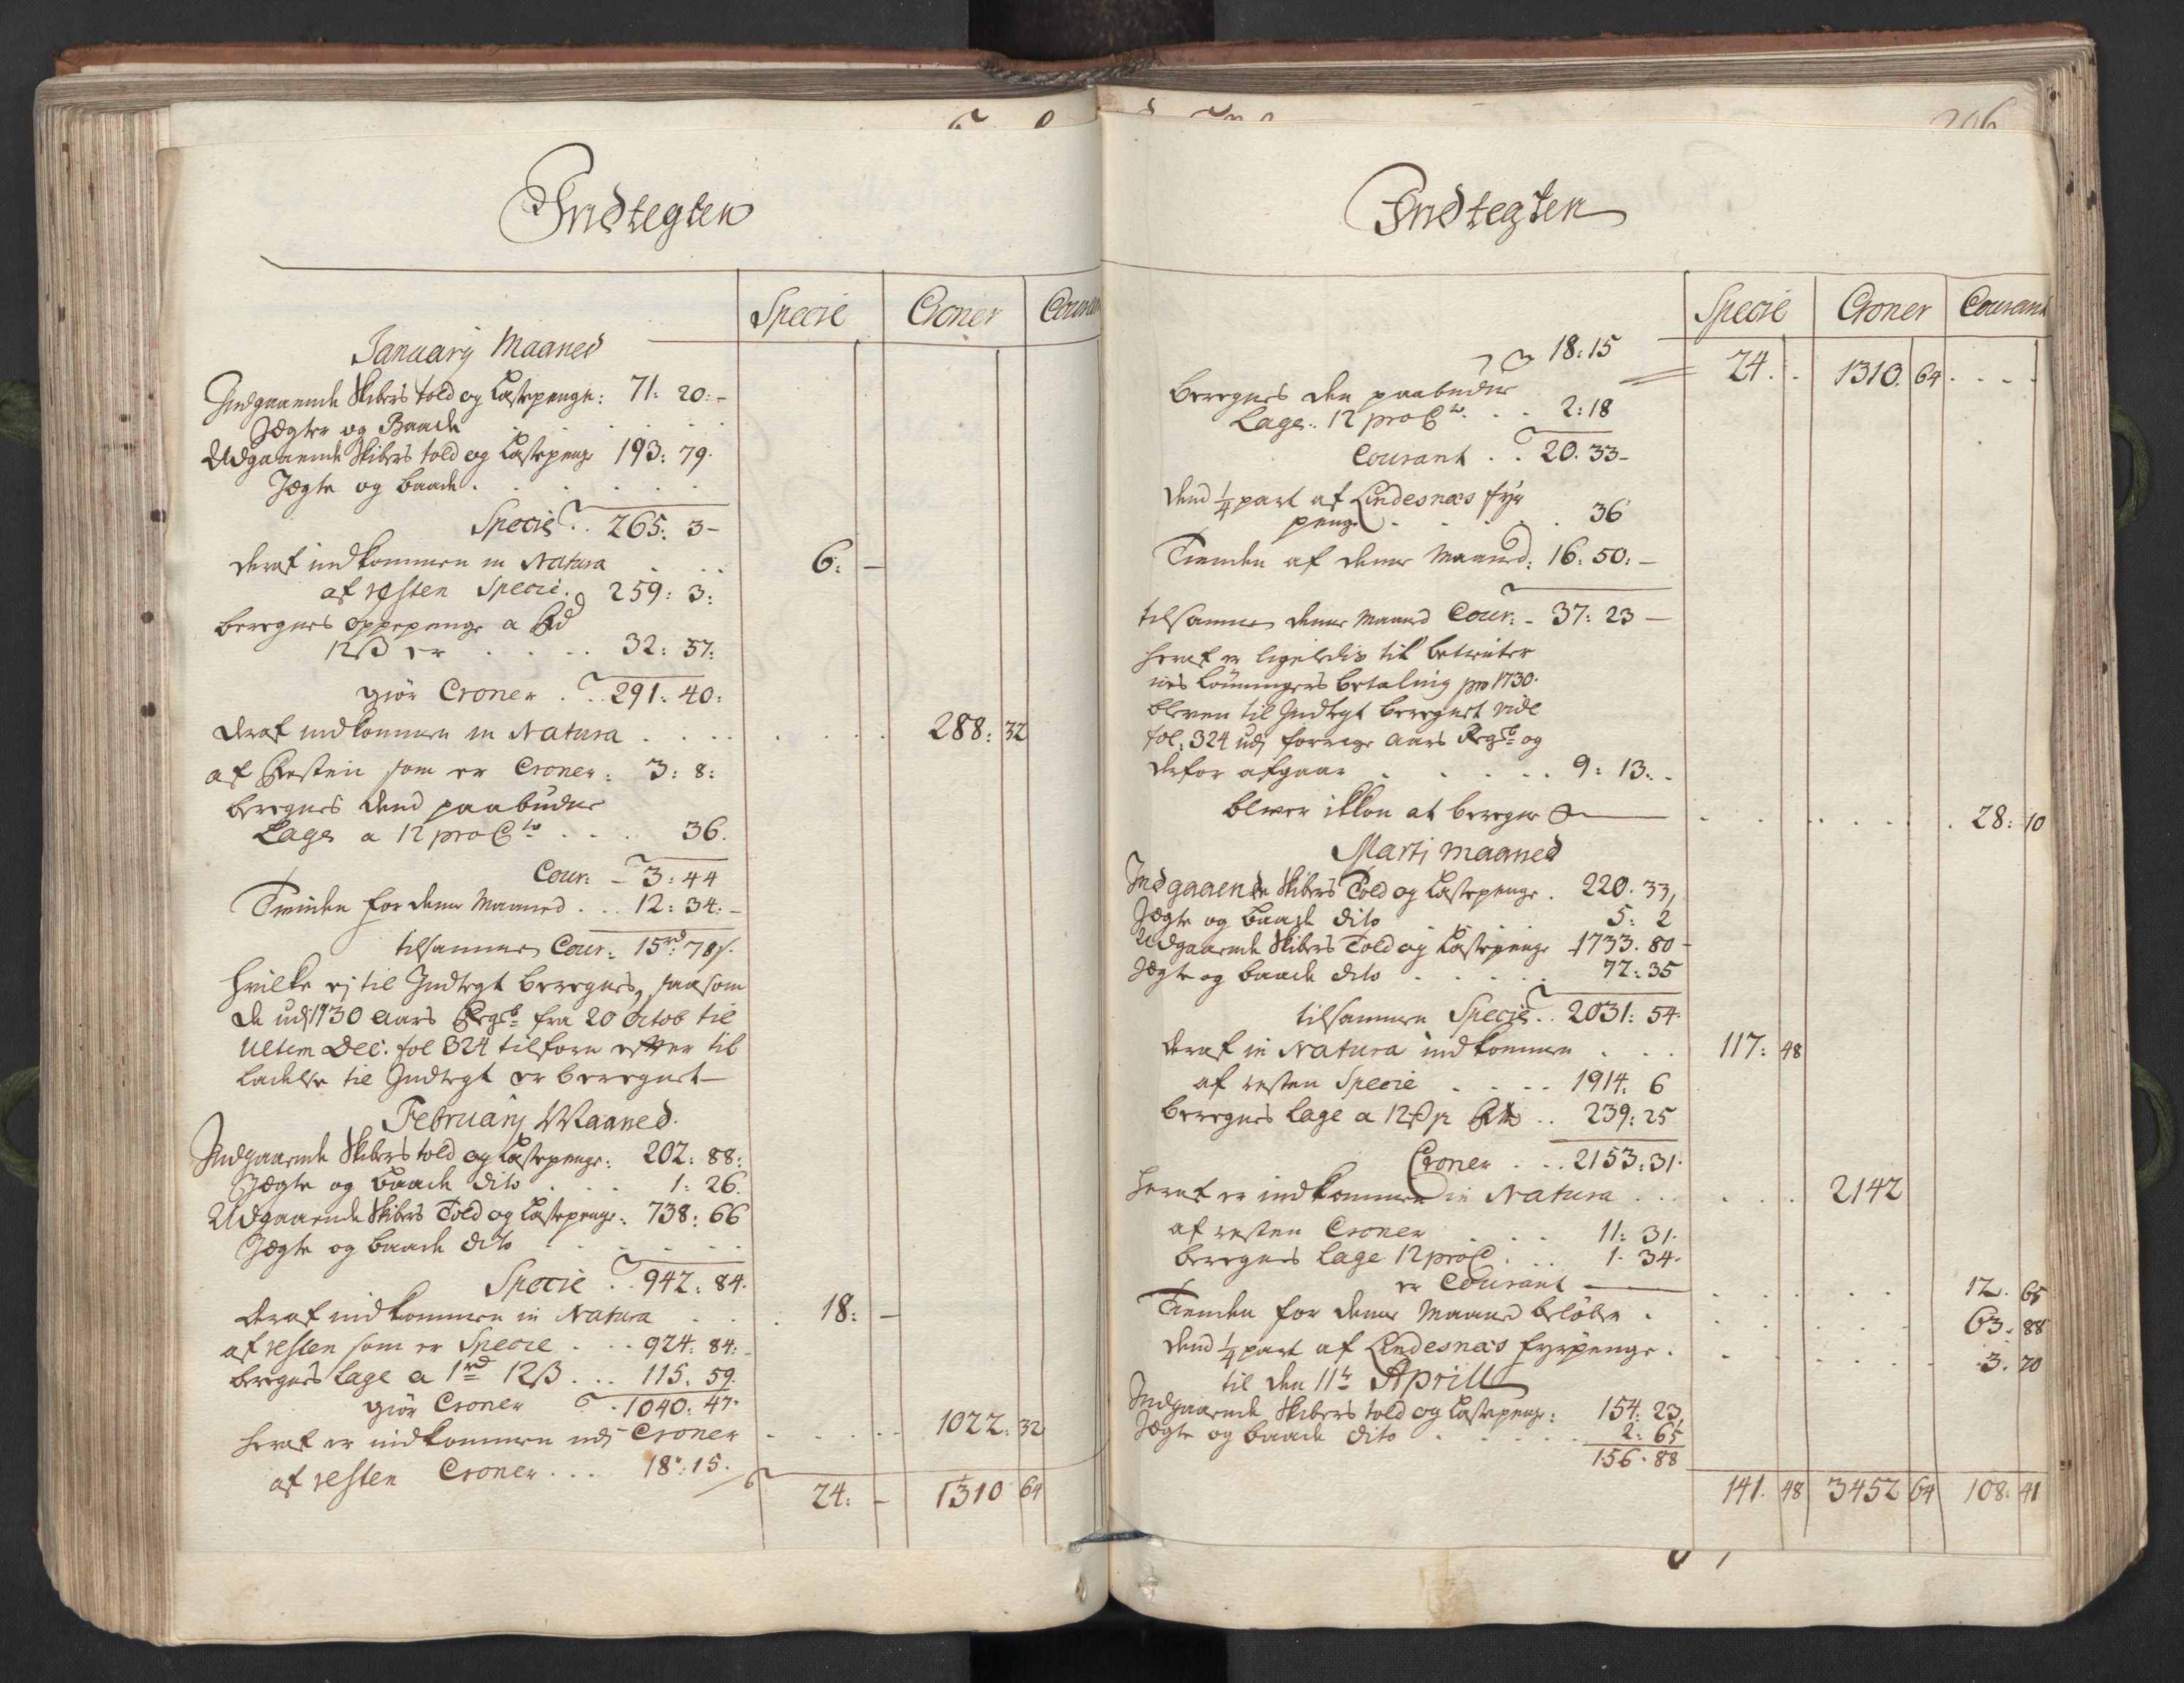 Indtegten
Specie Croner Couran
January Maaned
Indgaaende Skibers told og Lastepenge: 71: 20:-
Jægter og Baade . . . .
Udgaaende Skibers told og Lastepenge 193: 79.
Jægte og baade . . . . .
Specie . . 265: 3-
deraf indkommen in Natura . . . 6: –
af resten Specie. 259: 3:
beregnes oppepenge a Rd
12ß er . . . . . 32: 37:
giør Croner . . 291: 40:
deraf indkommen in Natura . . . . . . . 288: 32
af Resten som er Croner: 3: 8:
beregnes dend paabudne
Lage a 12 pro Cto . . . . 36.
Cour: – 3: 44
Tienden for denne Maaned . . . 12: 34:-
tilsammen Cour: 15rd: 78ß.
hvilke ej til Indtegt beregnes, saasom
de udj 1730 Aars Regsb fra 20 octob til
Ultim Dec: fol 324 tilforn efter til
ladelse til Indtegt er beregnet –
February Maaned.
Indgaaende Skibers told og Lastepenge: 202: 88:
Jægte og baade dito . . . 1: 26.
Udgaaende Skibers Told og Lastepenge: 738: 66
Jægte og baade dito . . . . .
Specie . . 942: 84.
deraf indkommen in Natura . . . 18: –
af resten som er Specie . . . 924: 84:-
beregnes Lage a 1rd 12ß . . . 115: 59.
giør Croner . . 1040: 47.
heraf er indkommen udj Croner . . . . . 1022: 32
af resten Croner . . . 18: 15.
24: – 1310 64
206
Indtegten
Specie Croner Courant
18: 15 24. . 1310. 64 . . . .
beregnes den paabudne
Lage. 12 pro Cto . . . 2: 18
Courant . . 20. 33-
dend 1/4 part af Lindesnæs fyr
penge . . . . . 36
Tienden af denne Maaned: 16: 50:-
tilsammen denne Maaned Cour: – 37: 23 –
heraf er ligeledis til betienter
nes Lønningers betaling pro 1730.
bleven til Indtegt beregnet vide
fol: 324 udj forrige Aars Regsb og
derfor afgaar . . . . . . 9: 13. .
bliver ikkon at beregne . . . . . . . 28: 10
Martj maaned
Indgaaende Skibers Told og Lastepenge . 220. 33,
Jægte og baade dito . . . 5: 2
Udgaaende Skibers Told og Lastepenge 1733. 80 -
Jægte og baade dito . . . . . 72: 35
tilsammen Specie . . 2031: 54.
deraf in Natura indkommen . . . 117: 48
af resten Specie . . . . 1914. 6
beregnes Lage a 12ß pr Rd . . 239: 25
Croner . . . 2153: 31.
heraf er indkommen in Natura . . . . . . 2142
af resten Croner . . . . 11: 31.
beregnes Lage 12 pro C . . . 1. 34.
er Courant — . . . . . 12. 65
Tienden for denne Maaned beløber . . . . . . . 63: 88
dend 1/4 part af Lindesnæs fyrpenge . . . . . . . 3. 20
til den 11te Aprill
Indgaaende Skibers told og Lastepenge: 154: 23,
Jægte og baade dito . . . . . 2: 65
156. 88
141. 48 3452 64 108: 41